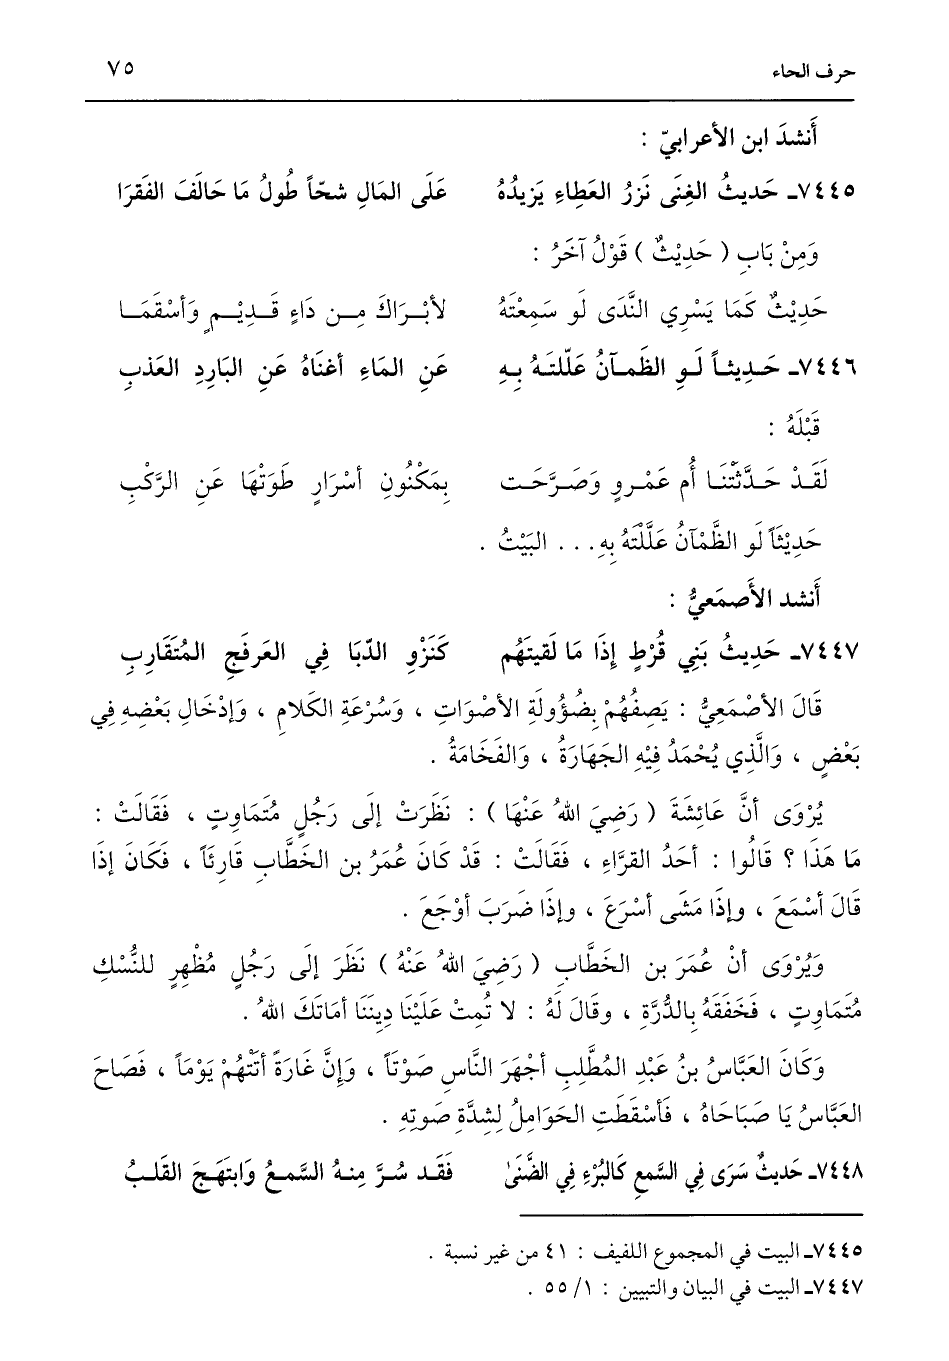 حرف الحاء ٧٥
أَنشدَ ابن الأعرابيّ :
٧٤٤٥ـ حَديثُ الغِنَى نَزرُ العَطاءِ يَزيدُهُ عَلَى المَالِ شحّاً طُولُ مَا حَالَفَ الفَقرَا
وَمِنْ بَابِ ( حَدِيْثٌ ) قَوْلُ آخَرُ :
حَدِيْثٌ كَمَا يَسْرِي النَّدَى لَو سَمِعْتَهُ لأبْـرَاكَ مِـن دَاءٍ قَـدِيْـمٍ وَأسْقَمَـا
٧٤٤٦ـ حَـديثـاً لَـوِ الظَمـآنُ عَلّلتَـهُ بِـهِ عَنِ المَاءِ أغنَاهُ عَنِ البَارِدِ العَذبِ
قَبْلَهُ :
لَقَـدْ حَـدَّثَتْنَـا أُم عَمْـرٍو وَصَـرَّحَـت بِمَكْنُونِ أسْرَارٍ طَوَتْهَا عَنِ الرَّكْبِ
حَدِيْثَاً لَو الظَّمْآنُ عَلَّلْتَهُ بِهِ . . . البَيْتُ .
أَنشد الأَصمَعيُّ :
٧٤٤٧ـ حَدِيثُ بَنِي قُرْطٍ إذَا مَا لَقيتَهُم كَنَزْوِ الدّبَا فِي العَرفَجِ المُتَقَارِبِ
قَالَ الأصْمَعِيُّ : يَصِفُهُمْ بِضُؤُولَةِ الأصْوَاتِ ، وَسُرْعَةِ الكَلَامِ ، وَإدْخَالِ بَعْضِهِ فِي
بَعْضٍ ، وَالَّذِي يُحْمَدُ فِيْهِ الجَهَارَةُ ، وَالفَخَامَةُ .
يُرْوَى أنَّ عَائِشَةَ ( رَضِيَ اللهُ عَنْهَا ) : نَظَرَتْ إلَى رَجُلٍ مُتَمَاوِتٍ ، فَقَالَتْ :
مَا هَذَا ؟ قَالُوا : أحَدُ القرَّاءِ ، فَقَالَتْ : قَدْ كَانَ عُمَرُ بن الخَطَّابِ قَارِئَاً ، فَكَانَ إذَا
قَالَ أسْمَعَ ، وإذَا مَشَى أسْرَعَ ، وإذَا ضرَبَ أوْجَعَ .
وَيُرْوَى أنْ عُمَرَ بن الخَطَّابِ ( رَضِيَ اللهُ عَنْهُ ) نَظَرَ إلَى رَجُلٍ مُظْهِرٍ للنُّسْكِ
مُتَمَاوِتٍ ، فَخَفَقَهُ بِالدُّرَّةِ ، وقَالَ لَهُ : لا تُمِتْ عَلَيْنَا دِينَنَا أمَاتَكَ اللهُ .
وَكَانَ العَبَّاسُ بنُ عَبْدِ المُطَّلِبِ أجْهَرَ النَّاسِ صَوْتَاً ، وَإنَّ غَارَةً أتَتْهُمْ يَوْمَاً ، فَصَاحَ
العَبَّاسُ يَا صَبَاحَاهُ ، فَأسْقَطَتِ الحَوَامِلُ لِشِدَّةِ صَوتِهِ .
٧٤٤٨ـ حَديثٌ سَرَى فِي السَّمعِ كَالبُرْءِ فِي الضَّنَىٰ فَقَـد سُـرَّ مِنـهُ السَّمـعُ وَابتَهَـجَ القَلـبُ
٧٤٤٥ـ البيت في المجموع اللفيف : ٤١ من غير نسبة .
٧٤٤٧ـ البيت في البيان والتبيين : ١/ ٥٥ .